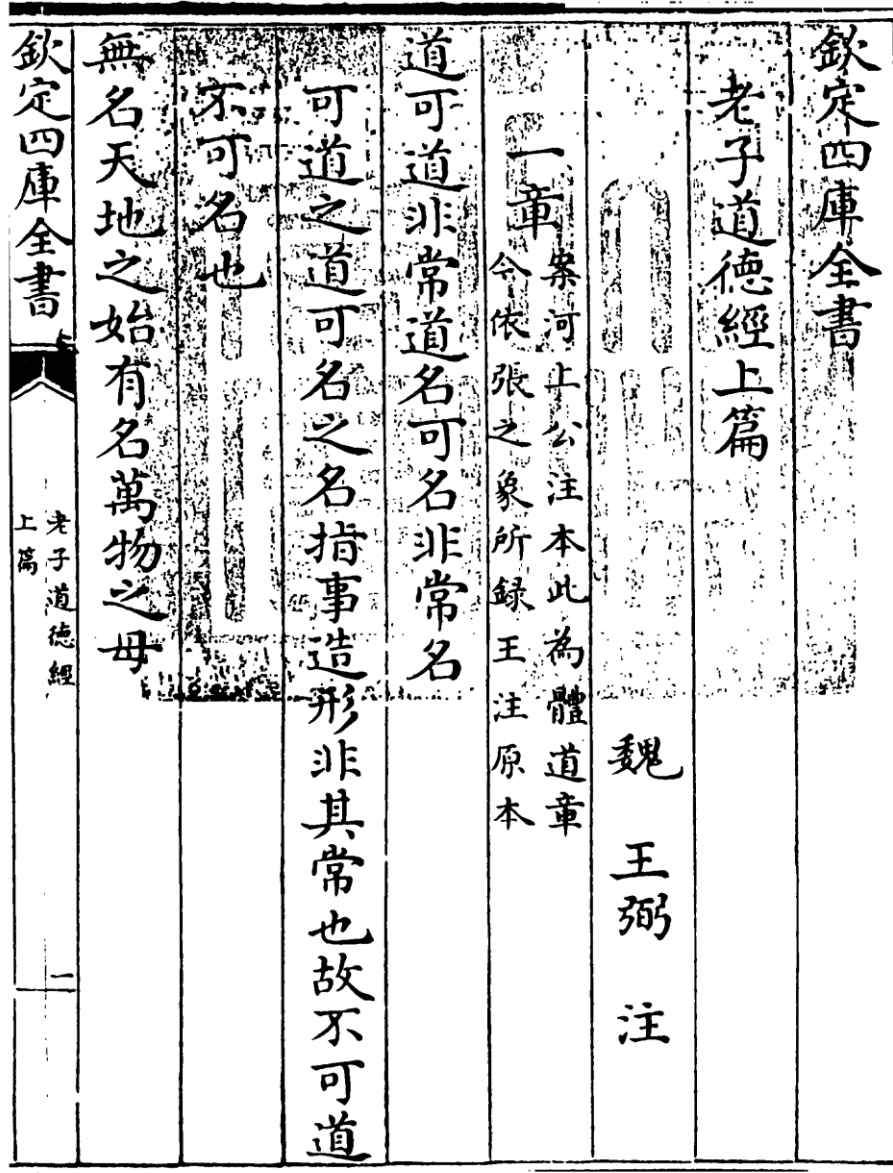 欽定四庫全書
老子道德經上篇
魏 王弼 注
一章
案河上公注本此為體道章
今依張之象所録王注原本
道可道非常道名可名非常名
可道之道可名之名指事造形非其常也故不可道
不可名也
無名天地之始有名萬物之母
欽定四庫全書
老子道德經
上篇
一